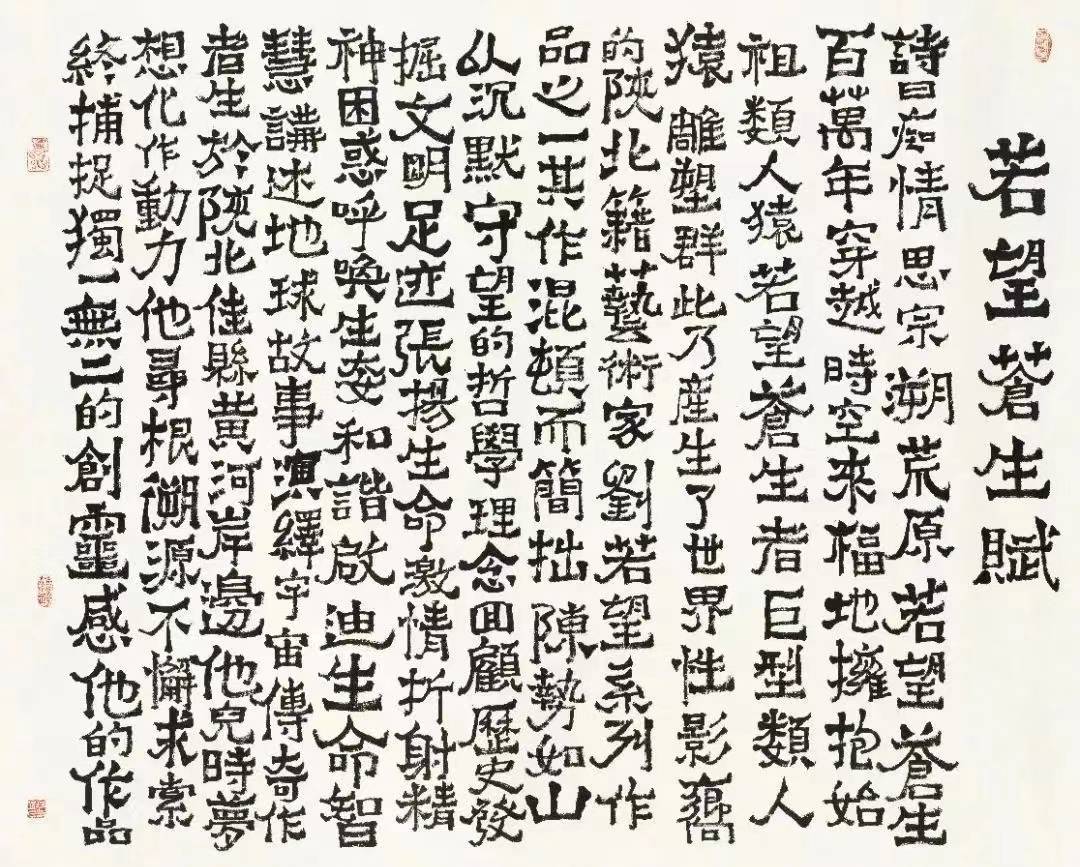 若望蒼生賦
詩曰痴情思宗溯荒原若望蒼生
百萬年穿越時空来福地擁抱始
祖類人猿若望蒼生者巨型類人
猿雕塑群此乃産生了世界性影響
的陝北籍藝術家劉若望系列作
品之一其作混頓而簡拙陳勢如山
从沉默守望的哲學理念回顧歷史發
掘文明足迹張揚生命激情折射精
神困惑呼喚生姿和諧啟迪生命智
慧講述地球故事演繹宇宙傳奇作
者生於陝北佳縣黄河岸邊他兒時夢
想化作動力他尋根溯源不懈求索
終捕捉獨一無二的創靈感他的作品